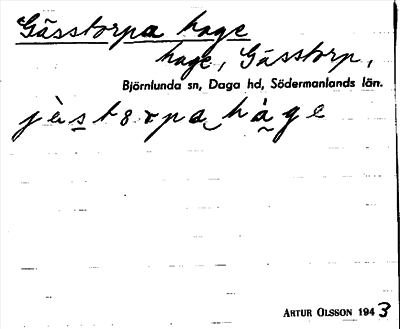 Gässtorpa hage
hage, Gässtorp,
Björnlunda sn, Daga hd, Södermanlands län.
jὲstorpa hàge
ARTUR OLSSON 1943